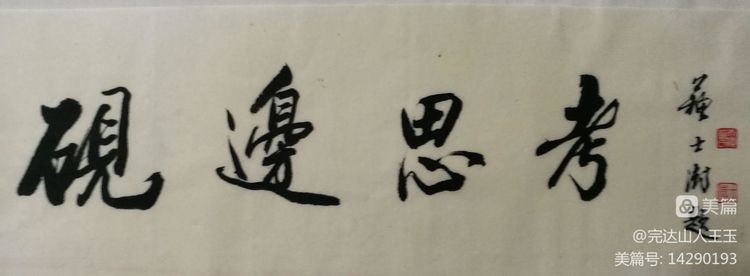 硯邊思考
蘇士澍題
美篇
@完达山人王玉
美篇号: 14290193